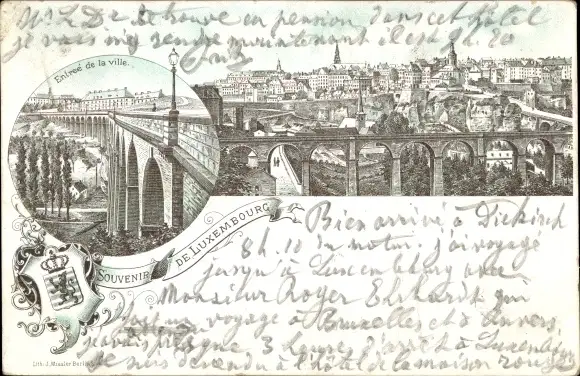 se trouve en pension dans cet hôtel
je vais m'y rendre maintenant il est 9h. 20
Entreé de la ville.
SOUVENIR DE LUXEMBOURG
Bien arrivé à Diekirch
8h.10 du matin. j'ai voyagé
jusqu'à Luxembourg avec
Monsieur Roger Ehrhardt qui
fait un voyage à Bruxelles et à Anvers,
j'avais presque 3 heures d'arrêt à Luxembg
je suis descendu à l'hôtel de la maison rouge
Lith. J. Miesler Berlin